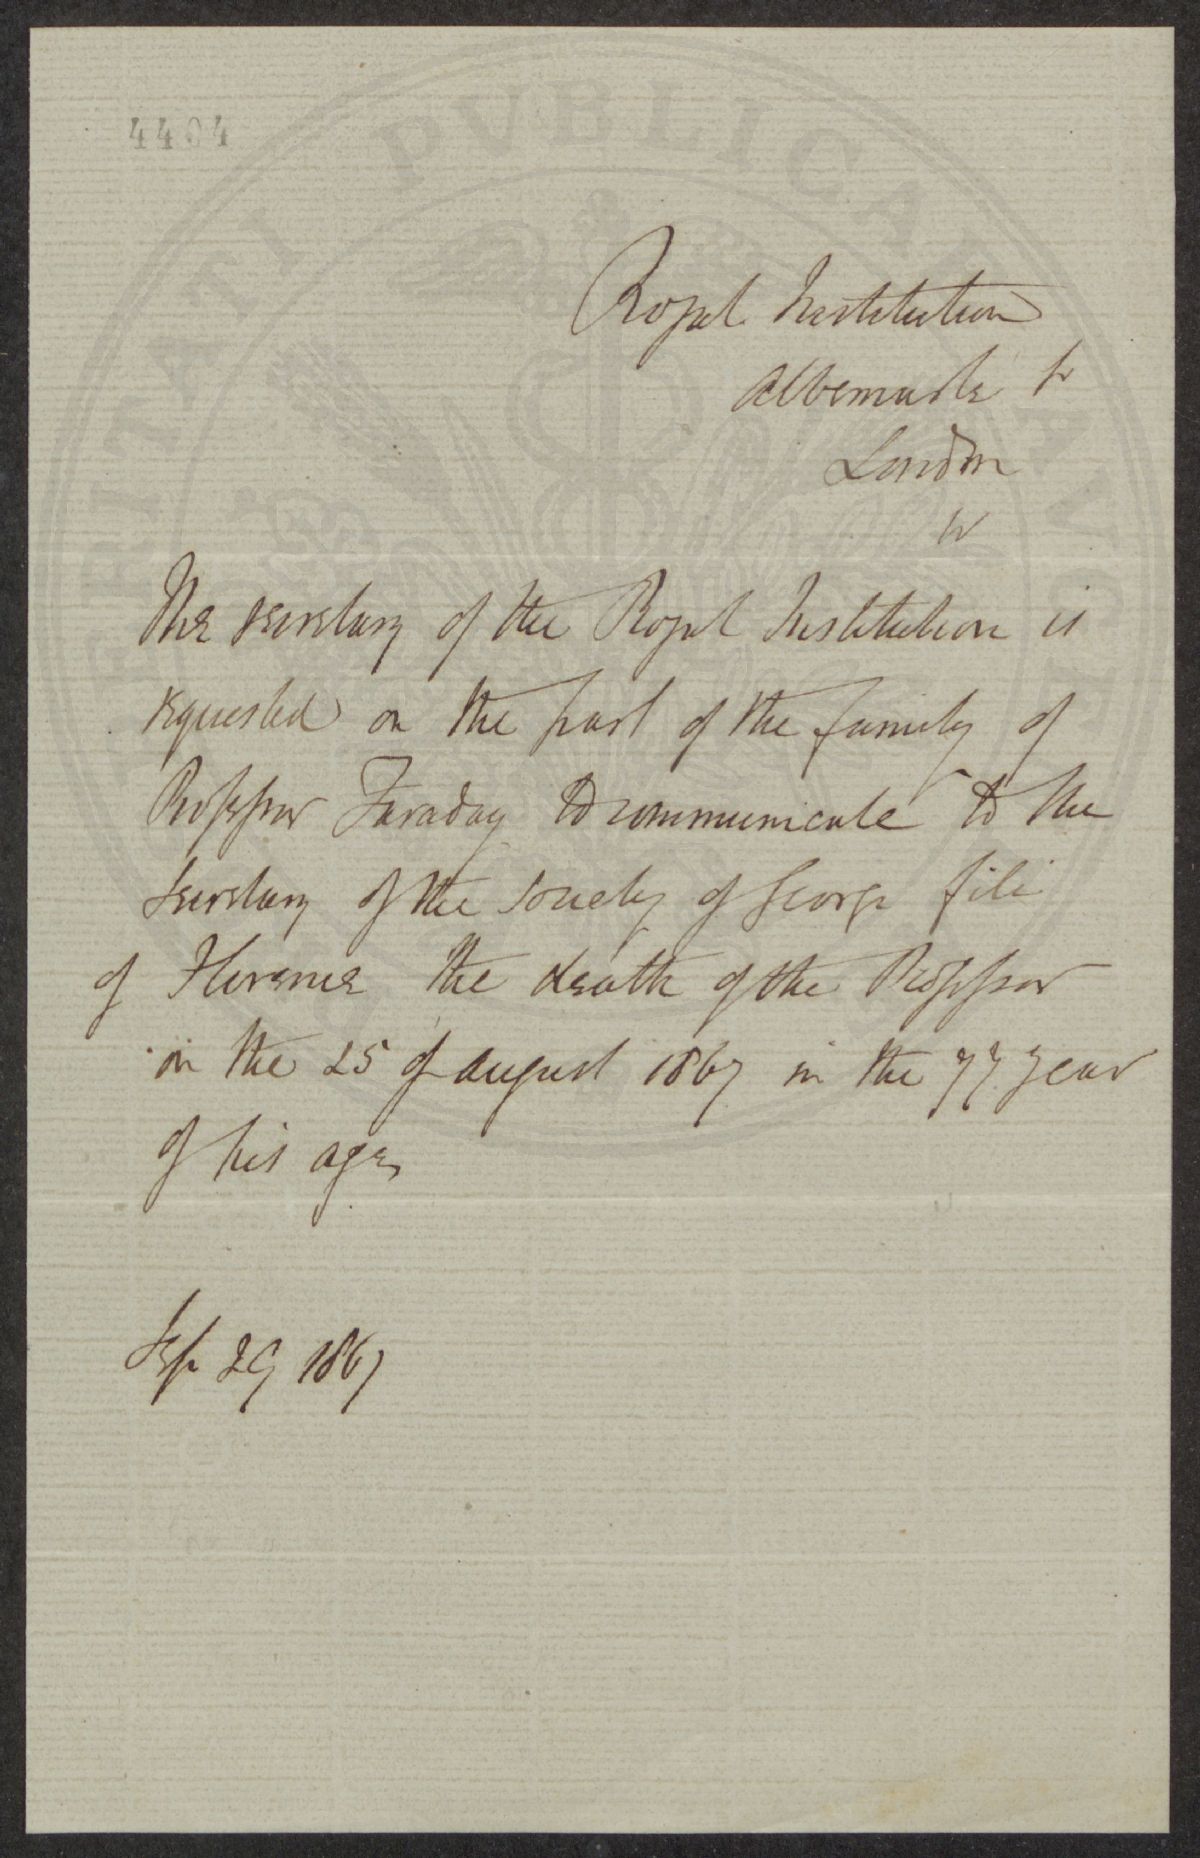 4404
Royal Institution
Albemarle St
London
W
The Secretary of the Royal Institution is
requested on the part of the family of
Professor Faraday to communicate to the
Secretary of the Society of George fili
of Florence the death of the Professor
on the 25 of August 1867 in the 77 year
of his age,
Sep 29 1867